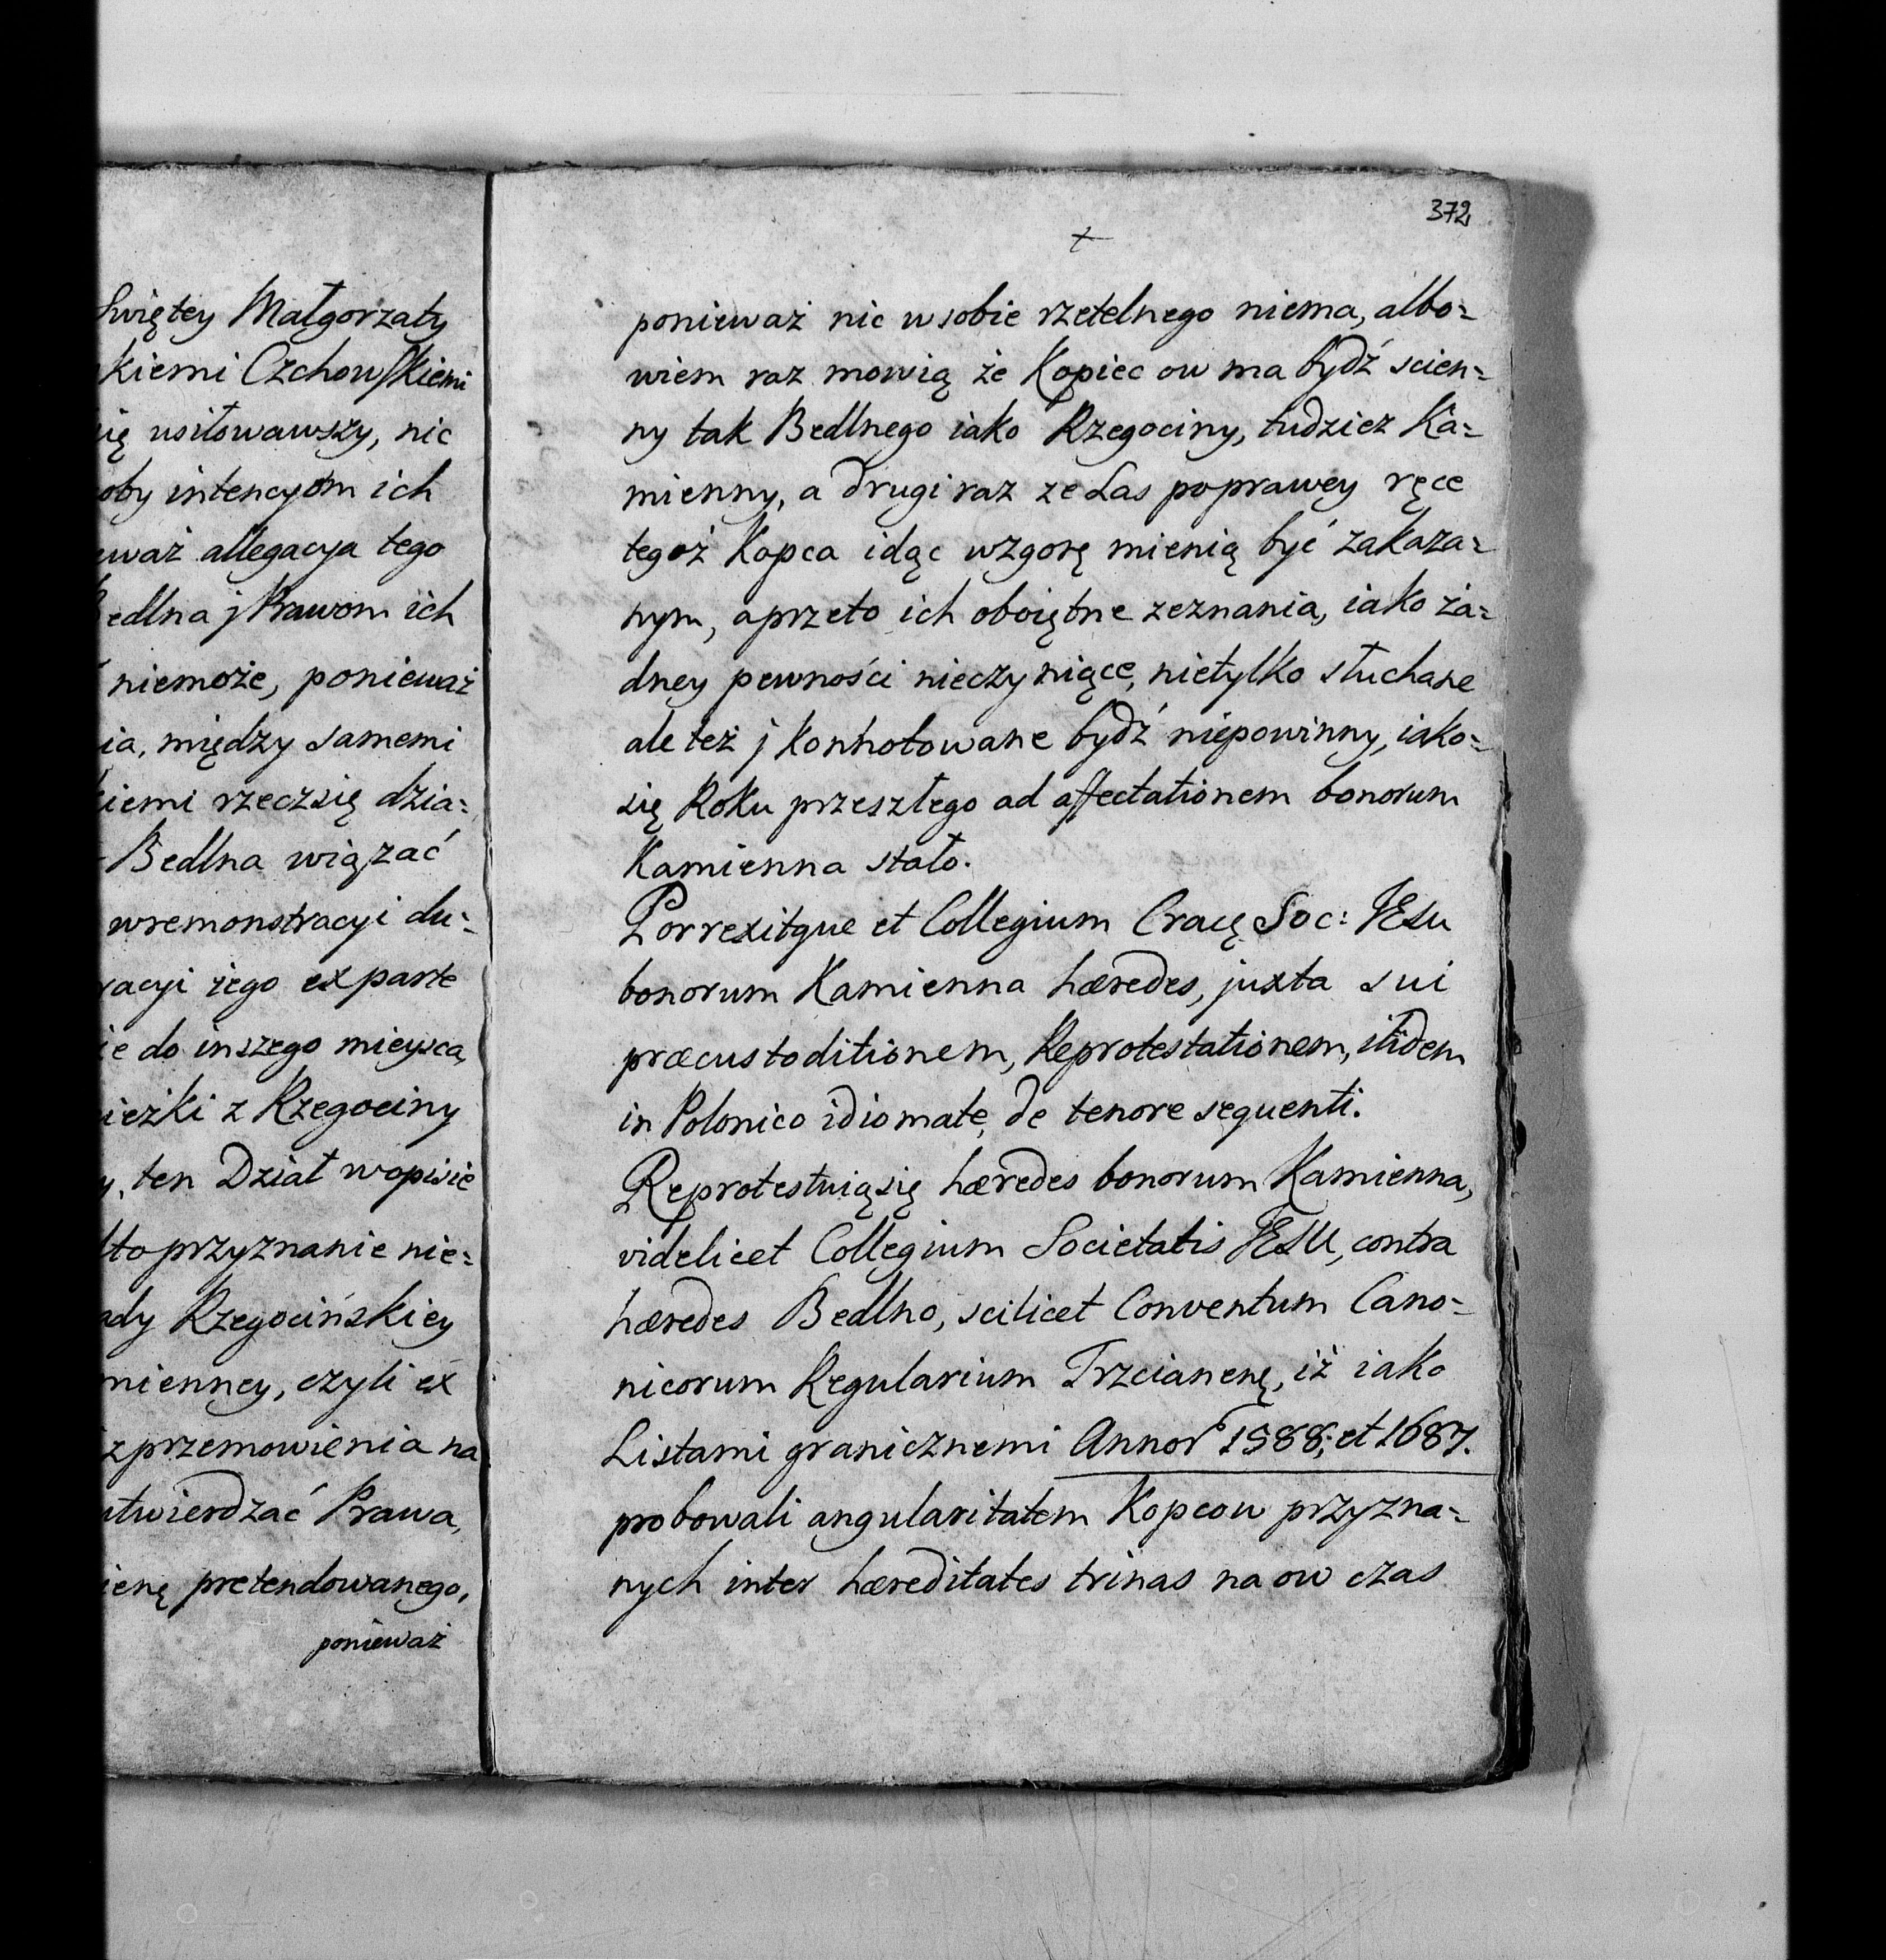 Swiętey Małgorzaty
kiemi Czchowskiemi
ię usiłowawszy, nic
oby intencyom ich
eważ allegacya tego
Bedlna j Prawom ich
niemoże, ponieważ
ia, między samemi
kiemi rzeczsię dzia=
Bedlna wiązać
wremonstracyi du=
racyi iego ex parte
ie do inszego mieysca,
ieżki z Rzegociny
y, ten Dział wopisie
lto przyznanie nie=
ady Rzegocińskiey
mienney, czyli ex
z przemowienia na
utwierdzać Prawa,
ienę pretendowanego,
ponieważ
372
ponieważ nic w sobie rzetelnego niema, albo=
wiem raz mowią że Kopiec ow ma bydź scien=
ny tak Bedlnego iako Rzegociny, tudzież Ka=
mienny, a drugi raz ze Las poprawey ręce
tegoż Kopca idąc wzgorę mienią być zakaza=
nym, aprzeto ich oboiętne zeznania, iako ża=
dney pewności nieczyniące, nietylko słuchane
ale też j konnotowane bydź niepowinny, iako=
się Roku przeszłego ad affectationem bonorum
Kamienna stało.
Porrexitque et Collegium Cracę Soc: JEsu
bonorum Kamienna hæredes, juxta sui
præcustoditionem, Reprotestationem, itidem
in Polonico idiomate, de tenore sequenti.
Reprotestuiąsię hæredes bonorum Kamienna,
videlicet Collegium Societatis JEsu, contra
hæredes Bedlno, scilicet Conventum Cano=
nicorum Regularium Trzcianenę, iż iako
Listami granicznemi Annor 1588; et 1687.
probowali angularitatem Kopcow przyzna=
nych inter hæreditates trinas na ow czas